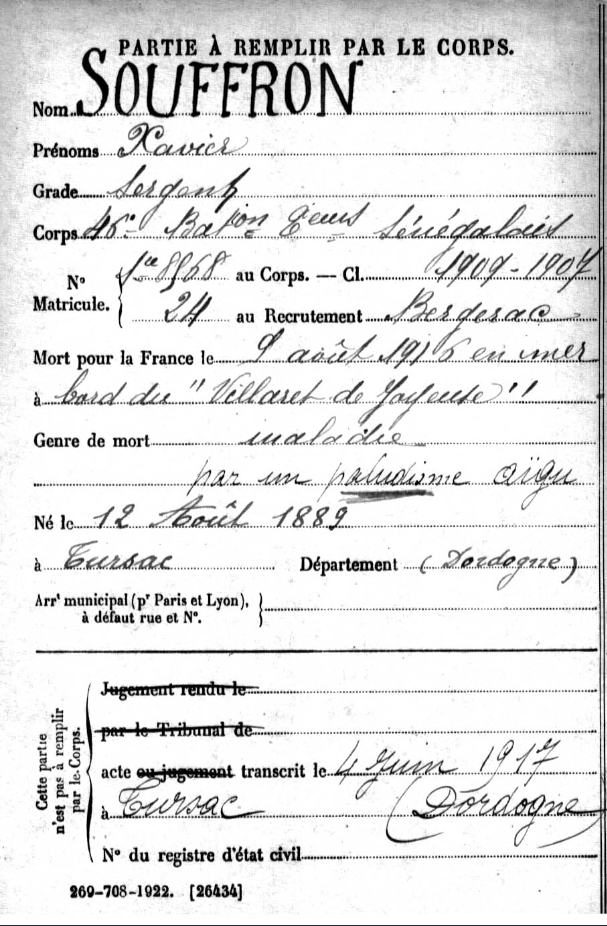 PARTIE À REMPLIR PAR LE CORPS.
Nom SOUFFRON
Prénoms Xavier
Grade Sergent
Corps 46e Baton Teurs Sénégalais
N° Matricule. 8868 au Corps. — Cl. 1909-1907
24 au Recrutement Bergerac
Mort pour la France le 9 août 1916 en mer
à bord du "Villaret de Joyeuse"
Genre de mort maladie
par un paludisme aïgu
Né le 12 Août 1889
à Tursac Département (Dordogne)
Arrt municipal (pr Paris et Lyon),
à défaut rue et N°.
Cette partie n'est pas à remplir par le Corps.
Jugement rendu le
par le Tribunal de
acte ou jugement transcrit le 4 Juin 1917
à Tursac (Dordogne)
N° du registre d'état civil
269-708-1922. [26434]